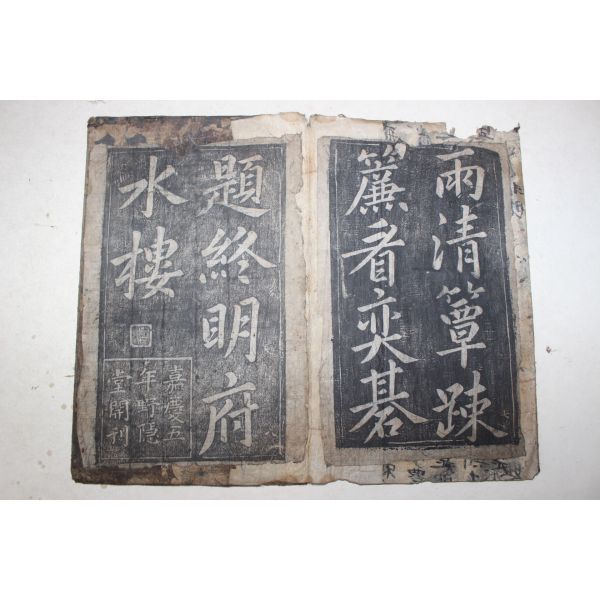 雨清簟踈
簾看奕碁
題終明府
水樓
嘉慶五
年野隱
堂開刊